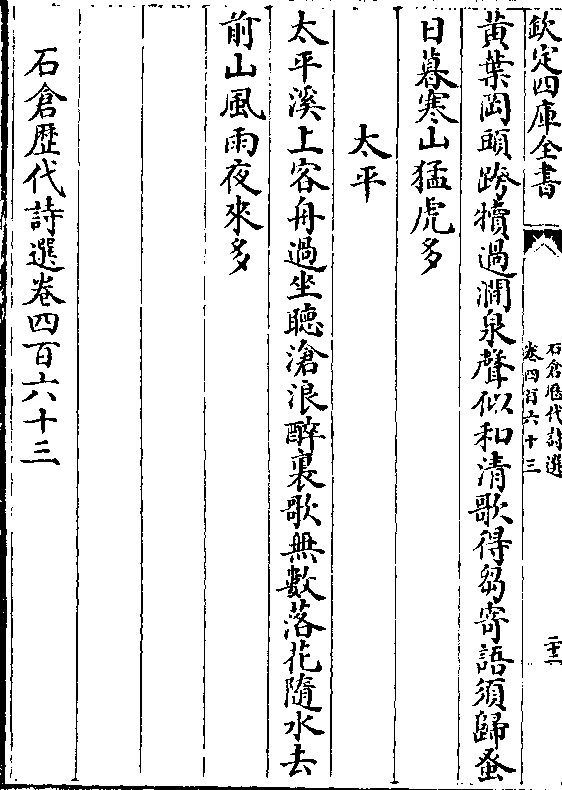 欽定四庫全書
石倉歴代詩選
卷四百六十三
二十二
黃葉岡頭跨犢過澗泉聲似和清歌得芻寄語須歸蚤
日暮寒山猛虎多
太平
太平溪上客舟過坐聽滄浪醉裏歌無數落花隨水去
前山風雨夜來多
石倉歴代詩選卷四百六十三